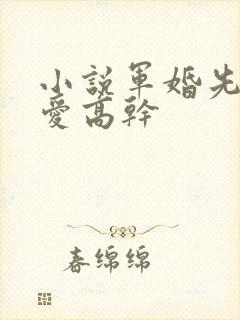 小說軍婚先
愛高幹
春绵绵